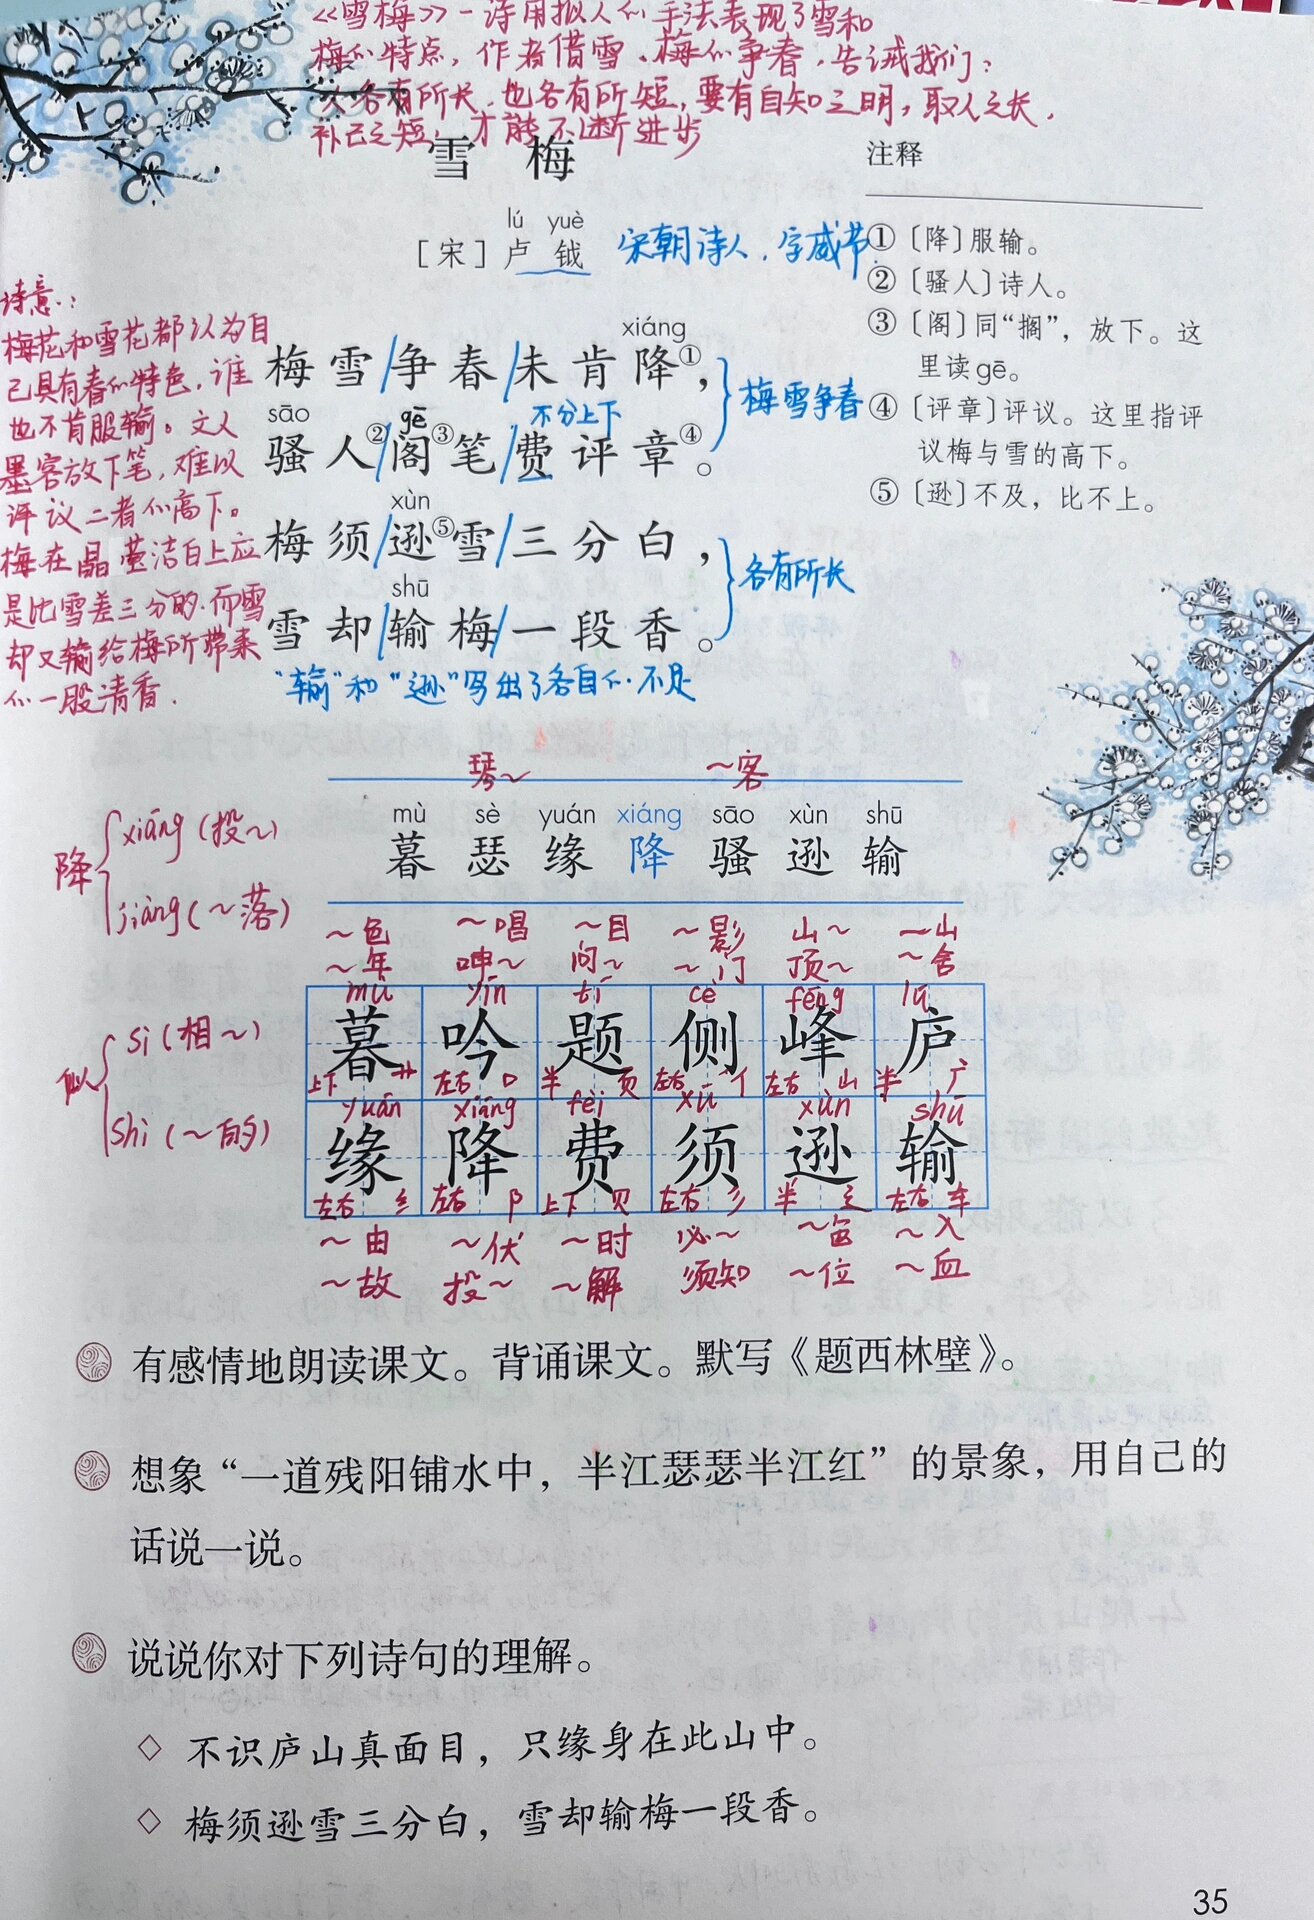 《雪梅》一诗用拟人的手法表现了雪和
梅的特点，作者借雪、梅的争春，告诫我们：
人各有所长，也各有所短，要有自知之明，取人之长，
补己之短，才能不断进步
雪 梅
lú yuè
[宋]卢 钺 宋朝诗人，字威节
注释
①〔降〕服输。
②〔骚人〕诗人。
③〔阁〕同“搁”，放下。这
里读gē。
④〔评章〕评议。这里指评
议梅与雪的高下。
⑤〔逊〕不及，比不上。
诗意：
梅花和雪花都认为自
己具有春的特色，谁
也不肯服输。文人
墨客放下笔，难以
评议二者的高下。
梅在晶莹洁白上应
是比雪差三分的，而雪
却又输给梅所带来
的一股清香．
xiáng
梅雪/争春/未肯降①，
梅雪争春
sāo gē 不分上下
骚人②/阁③笔/费评章④。
xùn
梅须/逊⑤雪/三分白，
各有所长
shū
雪却/输梅/一段香。
“输”和“逊”写出了各自的不足
琴～ ～客
mù sè yuán xiáng sāo xùn shū
暮 瑟 缘 降 骚 逊 输
降 xiáng（投～）
jiàng（～落）
似 sì（相～）
shì（～的）
～色 ～唱 ～目 ～影 山～ ～山
～年 呻～ 问～ ～门 顶～ ～舍
mù yín tí cè fēng lú
暮 吟 题 侧 峰 庐
上下 左右 口 半 页 左右 亻 左右 山 半 广
yuán xiáng fèi xū xùn shū
缘 降 费 须 逊 输
左右 纟 左右 阝 上下 贝 左右 彡 半 辶 左右 车
～由 ～伏 ～时 必～ ～色 ～入
～故 投～ ～解 须知 ～位 ～血
有感情地朗读课文。背诵课文。默写《题西林壁》。
想象“一道残阳铺水中，半江瑟瑟半江红”的景象，用自己的
话说一说。
说说你对下列诗句的理解。
◇ 不识庐山真面目，只缘身在此山中。
◇ 梅须逊雪三分白，雪却输梅一段香。
35